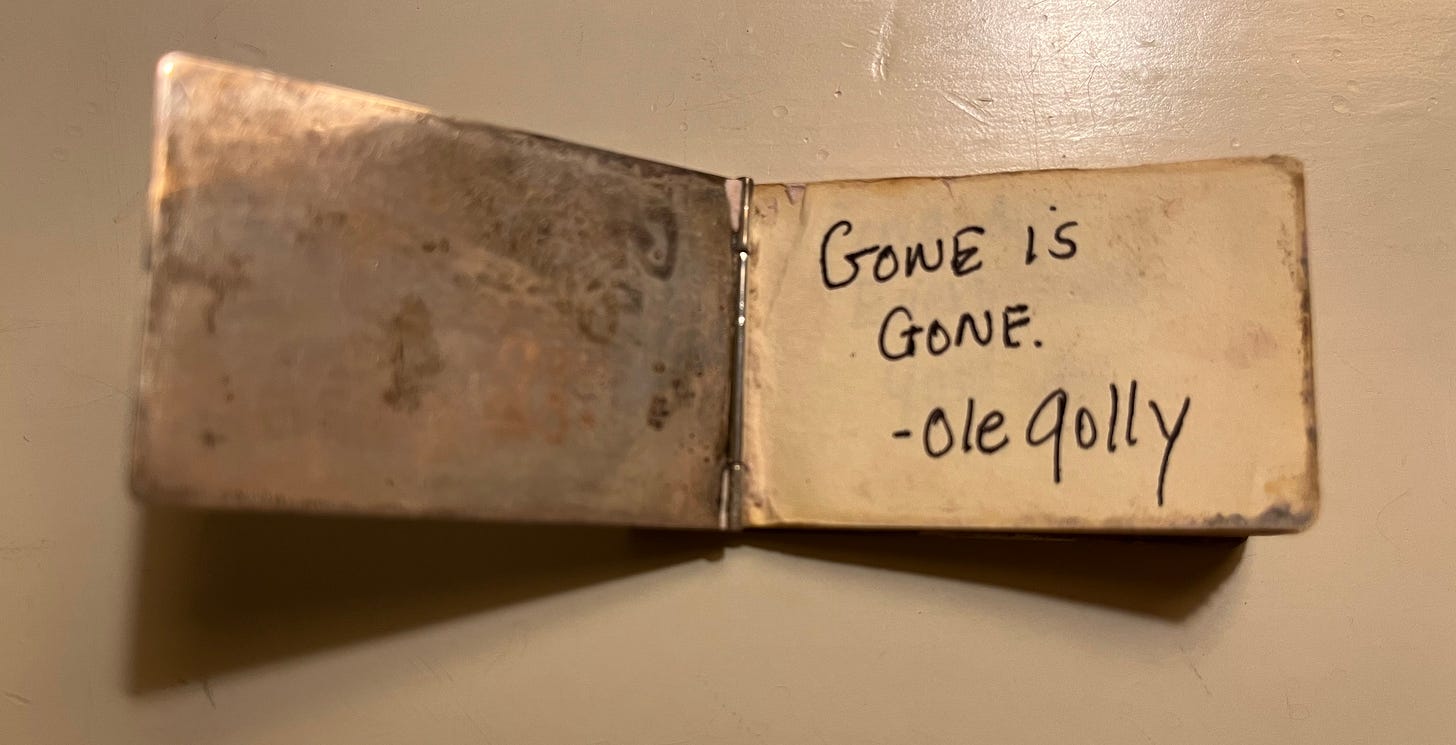 GONE iS
GONE.
-Ole golly